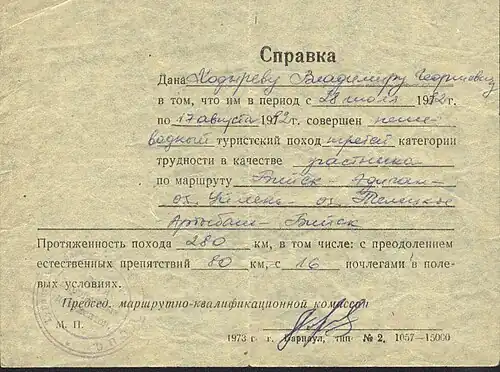 Справка
Дана Ходыреву Владимиру Георгиевичу
в том, что им в период с 28 июля 1972г.
по 17 августа 1972г. совершен пеше-
водный туристский поход третей категории
трудности в качестве участника
по маршруту Бийск – Адиган –
оз. Уймень – оз. Телецкое
Артыбаш – Бийск
Протяженность похода 280 км, в том числе: с преодолением
естественных препятствий 80 км, с 16 ночлегами в поле-
вых условиях.
Председ. маршрутно-квалификационной комиссии
М. П.
1973 г. г. Барнаул, тип № 2, 1057—15000